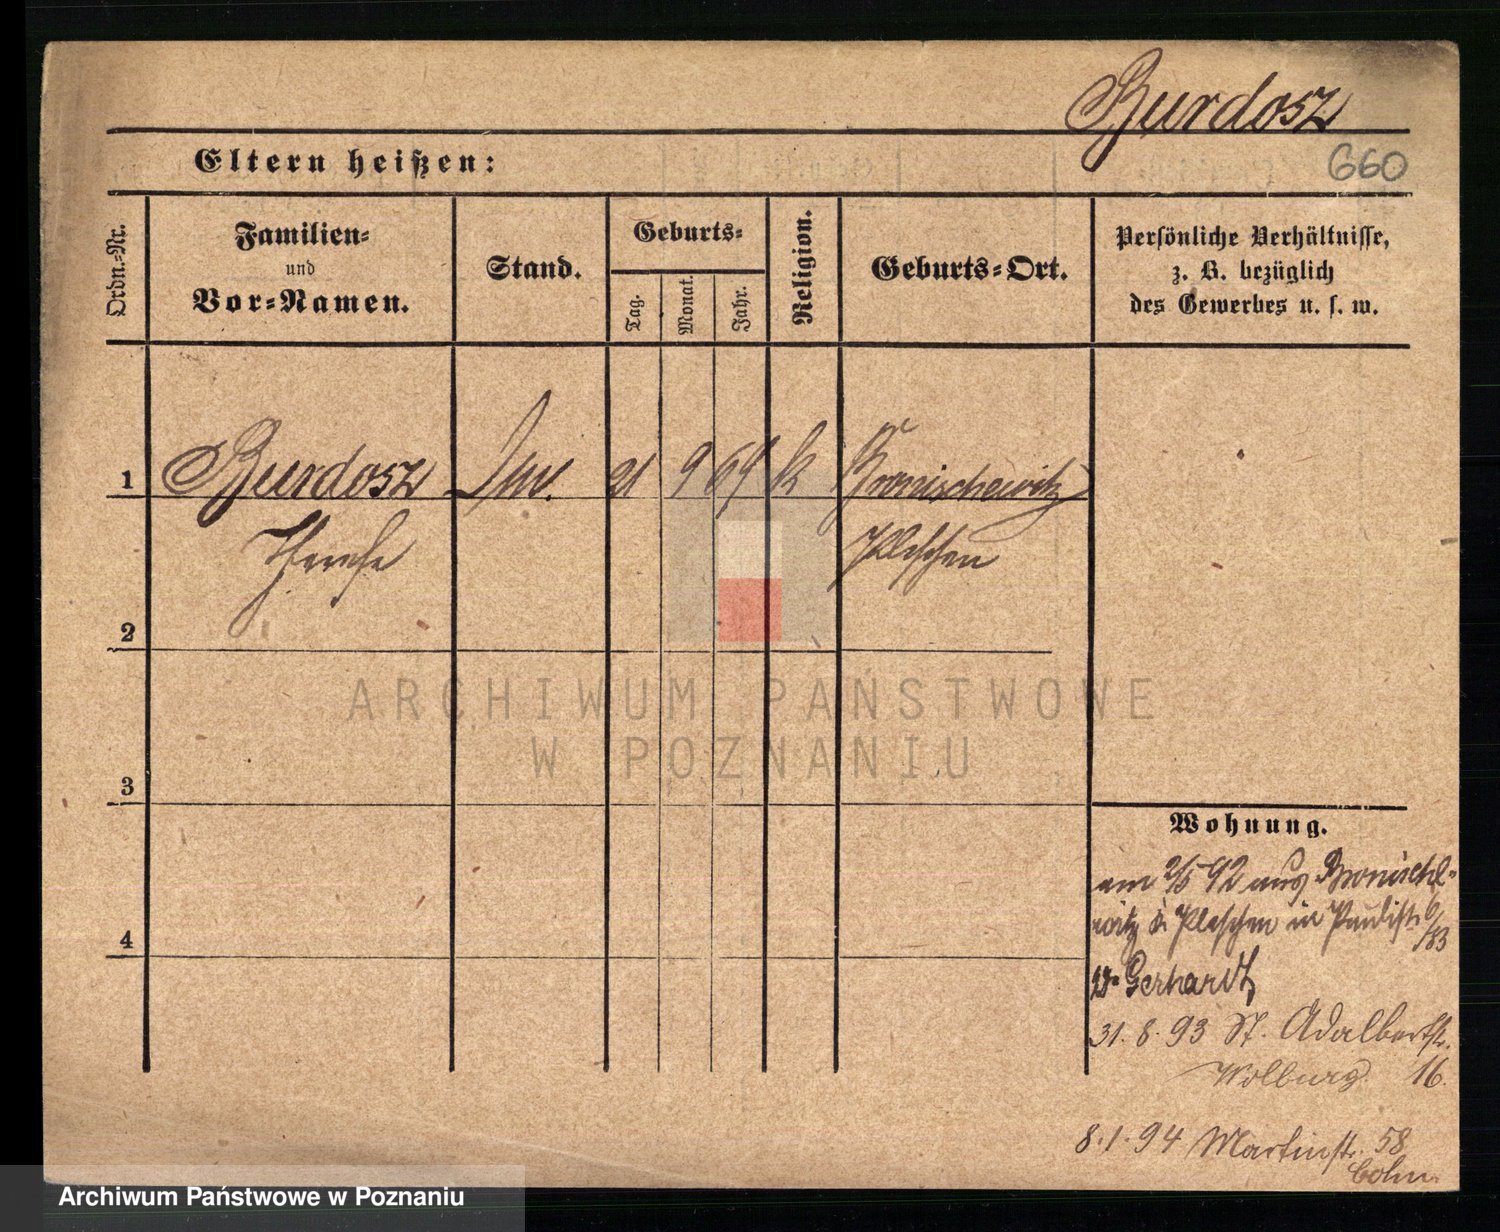 Burdosz
Eltern heißen:
660
Ordn.-Nr.
Familien-
und
Vor-Namen.
Stand.
Geburts-
Tag.
Monat.
Jahr.
Religion.
Geburts-Ort.
Persönliche Verhältnisse,
z. B. bezüglich
des Gewerbes u. s. w.
1 Burdosz 21 9 69 k Bronischewitz
Therese Pleschen
2
3
4
Wohnung.
am 2/5 92 aus Bronische-
witz Pleschen in Paulist. 6
b. Gerhardt
31. 8. 93 St. Adalbertstr.
Wolburg 16.
8. 1. 94 Martinstr. 58
Cohn.
ARCHIWUM PAŃSTWOWE
W POZNANIU
Archiwum Państwowe w Poznaniu